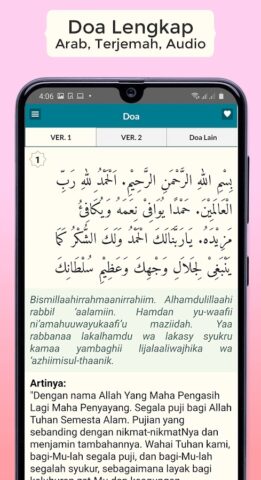 Doa Lengkap
Arab, Terjemah, Audio
4:06
Doa
VER. 1
VER. 2
Doa Lain
1
بِسْمِ اللهِ الرَّحْمَنِ الرَّحِيْمِ. اَلْحَمْدُ لِلّٰهِ رَبِّ
الْعَالَمِيْنَ. حَمْدًا يُوَافِيْ نِعَمَهُ وَيُكَافِئُ
مَزِيْدَهُ. يَارَبَّنَالَكَ الْحَمْدُ وَلَكَ الشُّكْرُ كَمَا
يَنْبَغِيْ لِجَلَالِ وَجْهِكَ وَعَظِيْمِ سُلْطَانِكَ
Bismillaahirrahmaanirrahiim. Alhamdulillaahi
rabbil 'aalamiin. Hamdan yu-waafii
ni'amahuuwayukaafi'u maziidah. Yaa
rabbanaa lakalhamdu wa lakasy syukru
kamaa yambaghii lijalaaliwajhika wa
'azhiimisul-thaanik.
Artinya:
"Dengan nama Allah Yang Maha Pengasih
Lagi Maha Penyayang. Segala puji bagi Allah
Tuhan Semesta Alam. Pujian yang
sebanding dengan nikmat-nikmatNya dan
menjamin tambahannya. Wahai Tuhan kami,
bagi-Mu-lah segala puji, dan bagi-Mu-lah
segalah syukur, sebagaimana layak bagi